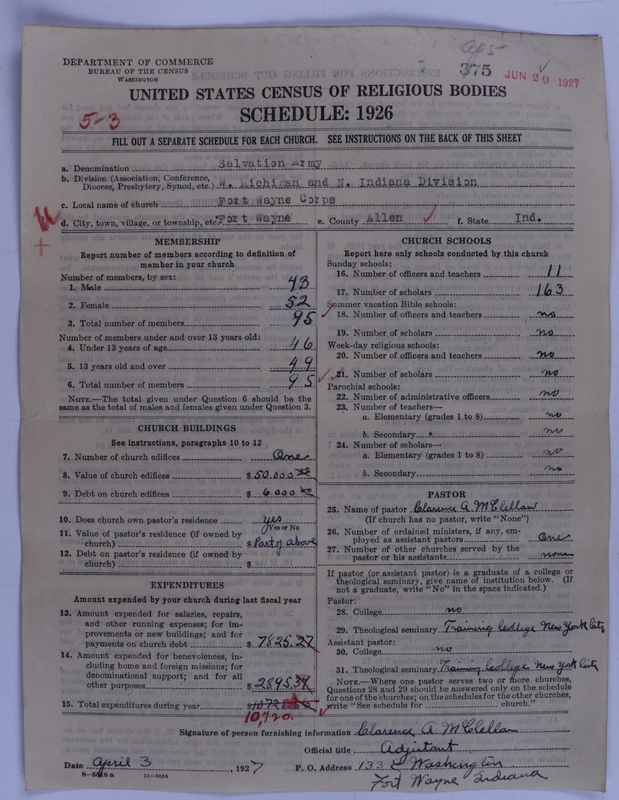 DEPARTMENT OF COMMERCE
BUREAU OF THE CENSUS
WASHINGTON
375
JUN 20 1927
UNITED STATES CENSUS OF RELIGIOUS BODIES
SCHEDULE: 1926
5-3
FILL OUT A SEPARATE SCHEDULE FOR EACH CHURCH. SEE INSTRUCTIONS ON THE BACK OF THIS SHEET
a. Denomination Salvation Army
b. Division (Association, Conference, Diocese, Presbytery, Synod, etc.) W. Michigan and N. Indiana Division
c. Local name of church Fort Wayne Corps
d. City, town, village, or township, etc. Fort Wayne e. County Allen f. State Ind.
MEMBERSHIP
Report number of members according to definition of
member in your church
Number of members, by sex:
1. Male 43
2. Female 52
3. Total number of members 95
Number of members under and over 13 years old:
4. Under 13 years of age 46
5. 13 years old and over 49
6. Total number of members 95
NOTE.—The total given under Question 6 should be the
same as the total of males and females given under Question 3.
CHURCH BUILDINGS
See instructions, paragraphs 10 to 12
7. Number of church edifices One
8. Value of church edifices $50.000 00
9. Debt on church edifices $ 6.000 00
10. Does church own pastor's residence yes
Yes or No
11. Value of pastor's residence (if owned by
church) $ Part of above
12. Debt on pastor's residence (if owned by
church) $
EXPENDITURES
Amount expended by your church during last fiscal year
13. Amount expended for salaries, repairs,
and other running expenses; for im-
provements or new buildings; and for
payments on church debt $ 7825.27
14. Amount expended for benevolences, in-
cluding home and foreign missions; for
denominational support; and for all
other purposes $ 2895.39
15. Total expenditures during year $
10,720.
CHURCH SCHOOLS
Report here only schools conducted by this church
Sunday schools:
16. Number of officers and teachers 11
17. Number of scholars 163
Summer vacation Bible schools:
18. Number of officers and teachers no
19. Number of scholars no
Week-day religious schools:
20. Number of officers and teachers no
21. Number of scholars no
Parochial schools:
22. Number of administrative officers no
23. Number of teachers—
a. Elementary (grades 1 to 8) no
b. Secondary no
24. Number of scholars—
a. Elementary (grades 1 to 8) no
b. Secondary no
PASTOR
25. Name of pastor Clarence A. McClellan
(If church has no pastor, write "None")
26. Number of ordained ministers, if any, em-
ployed as assistant pastors One
27. Number of other churches served by the
pastor or his assistants none
If pastor (or assistant pastor) is a graduate of a college or
theological seminary, give name of institution below. (If
not a graduate, write "No" in the space indicated.)
Pastor:
28. College no
29. Theological seminary Training College New York City
Assistant pastor:
30. College no
31. Theological seminary Training College New York City
NOTE.—Where one pastor serves two or more churches,
Questions 28 and 29 should be answered only on the schedule
for one of the churches; on the schedules for the other churches,
write "See schedule for church."
Signature of person furnishing information Clarence A. McClellan
Official title Adjutant
Date April 3, 1927 P. O. Address 133 E Washington
8—5218 a 11—9034 Fort Wayne Indiana